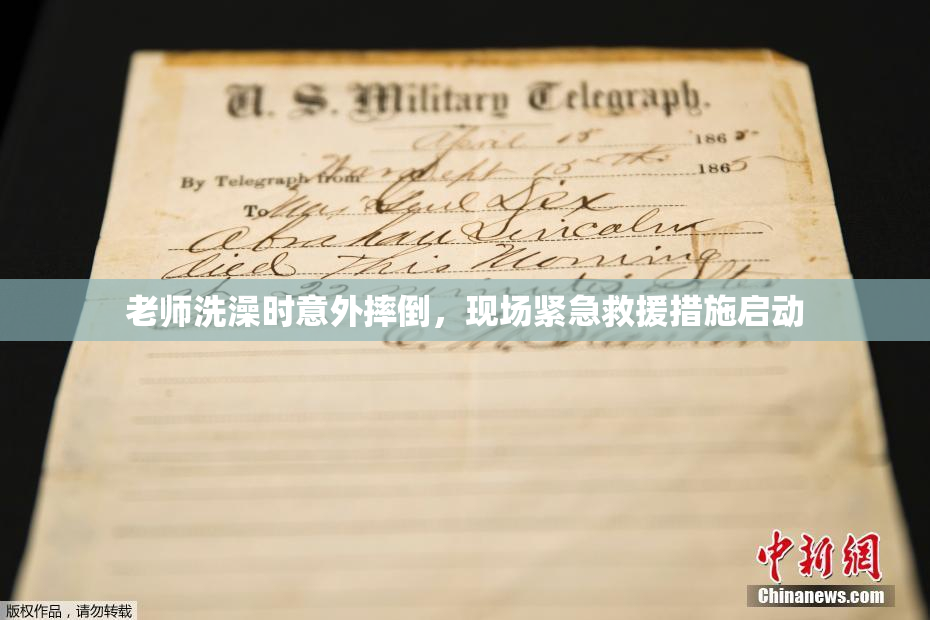 U. S. Military Telegraph.
April 15 1865
By Telegraph from War Dept 15th 1865
To Maj Genl Dix
Abraham Lincoln
died This Morning
at 22 minutes after
老师洗澡时意外摔倒，现场紧急救援措施启动
E. M. Stanton
中新网
Chinanews.com
版权作品，请勿转载